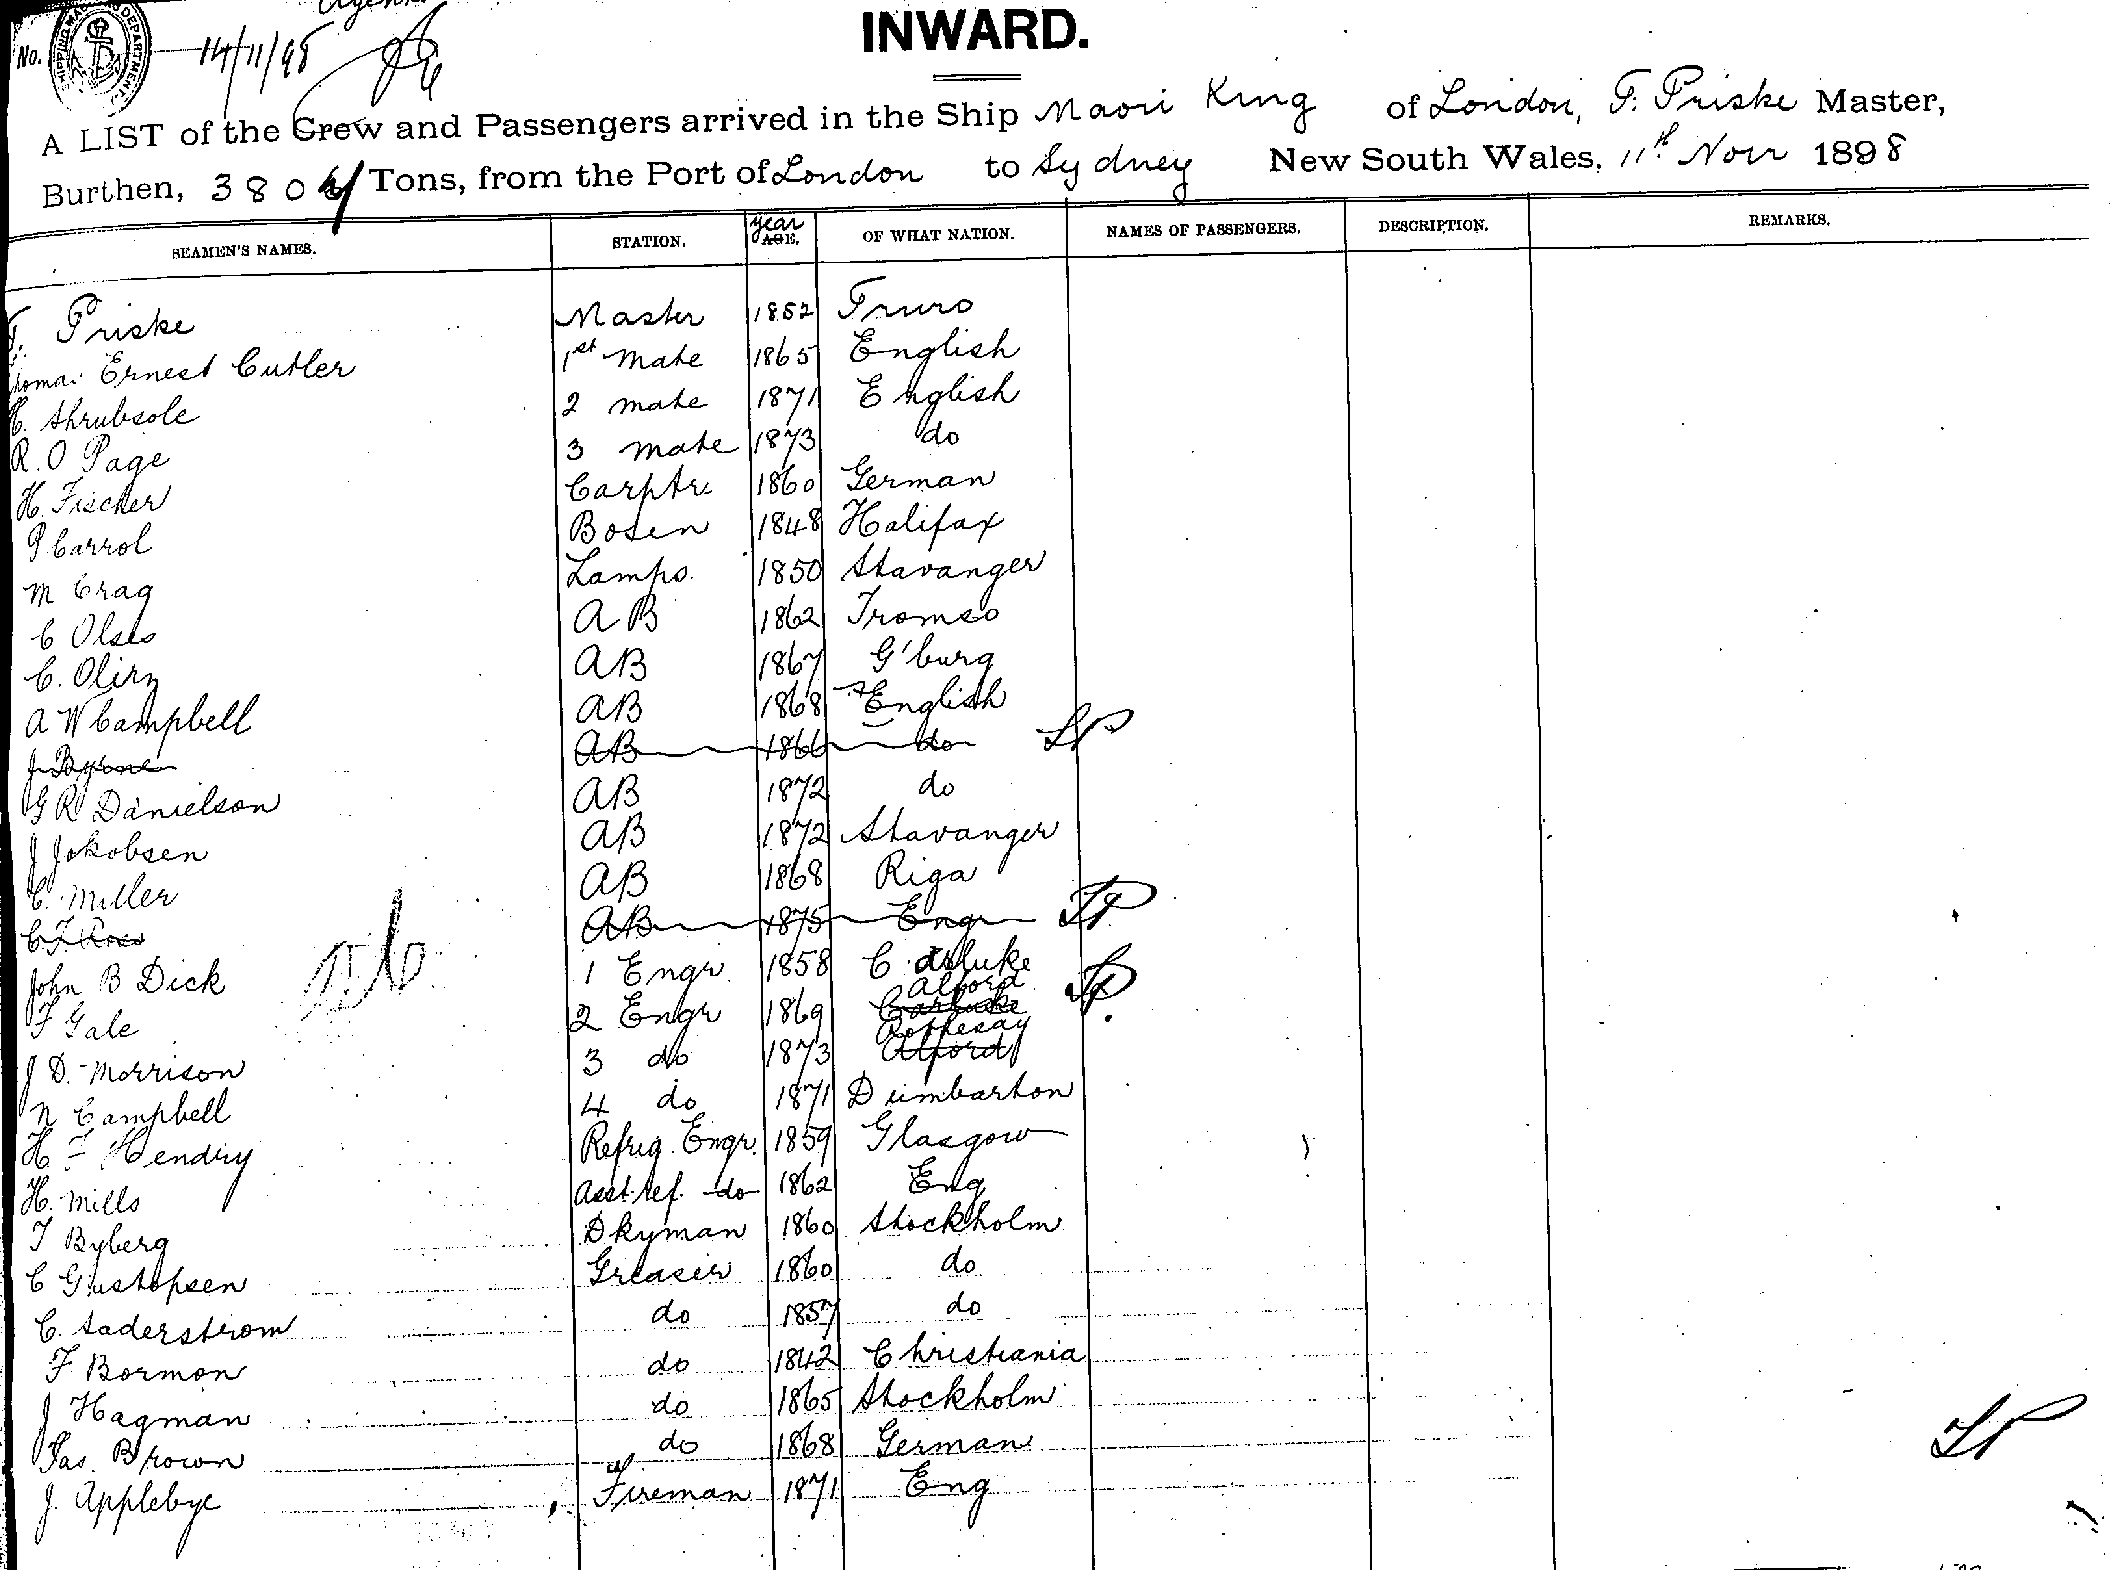 INWARD.
No.
SHIPPING MASTER'S DEPARTMENT
14/11/98
A LIST of the Crew and Passengers arrived in the Ship Maori King of London, F. Priske Master,
Burthen, 3804 Tons, from the Port of London to Sydney New South Wales, 11th Novr 1898
SEAMEN'S NAMES. STATION. year AGE. OF WHAT NATION. NAMES OF PASSENGERS. DESCRIPTION. REMARKS.
F. Priske Master 1852 Truro
Thomas Ernest Cutler 1st mate 1865 English
C. Shrubsole 2 mate 1871 English
R. O Page 3 mate 1873 do
H. Fischer Carptr 1860 German
P Carrol Bosen 1848 Halifax
M Crag Lamps. 1850 Stavanger
C Olsen AB 1862 Tromso
C. AB 1867 G'burg
A W Campbell AB 1868 English
J Byrone AB 1866 do
G R Danielson AB 1872 do
J Jokobsen AB 1872 Stavanger
C. Miller AB 1868 Riga
C. F. Ross AB 1875 Engr
John B Dick 1 Engr. 1858 Carluke
F Gale 2 Engr 1869 Alford Carluke
J D. Morrison 3 do 1873 Rothesay Alford
N Campbell 4 do 1871 Dumbarton
H F Hendry Refrig. Engr. 1859 Glasgow
H. Mills Asst. ref. do 1862 Eng
T Byberg Dkyman 1860 Stockholm
C Gustofsen Greaser 1860 do
C. Saderstrom do 1857 do
F Bormon do 1842 Christiania
J Hagman do 1865 Stockholm
Jas. Brown do 1868 German
J. Applebye Fireman 1871 Eng